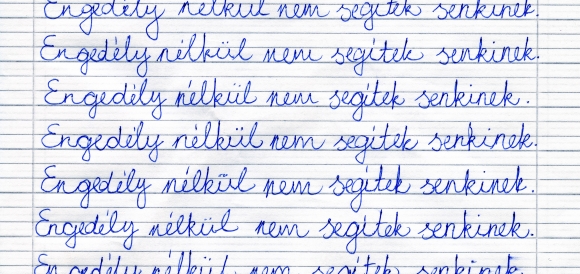 Engedély nélkül nem segítek senkinek.
Engedély nélkül nem segítek senkinek.
Engedély nélkül nem segítek senkinek.
Engedély nélkül nem segítek senkinek.
Engedély nélkül nem segítek senkinek.
Engedély nélkül nem segítek senkinek.
Engedély nélkül nem segítek senkinek